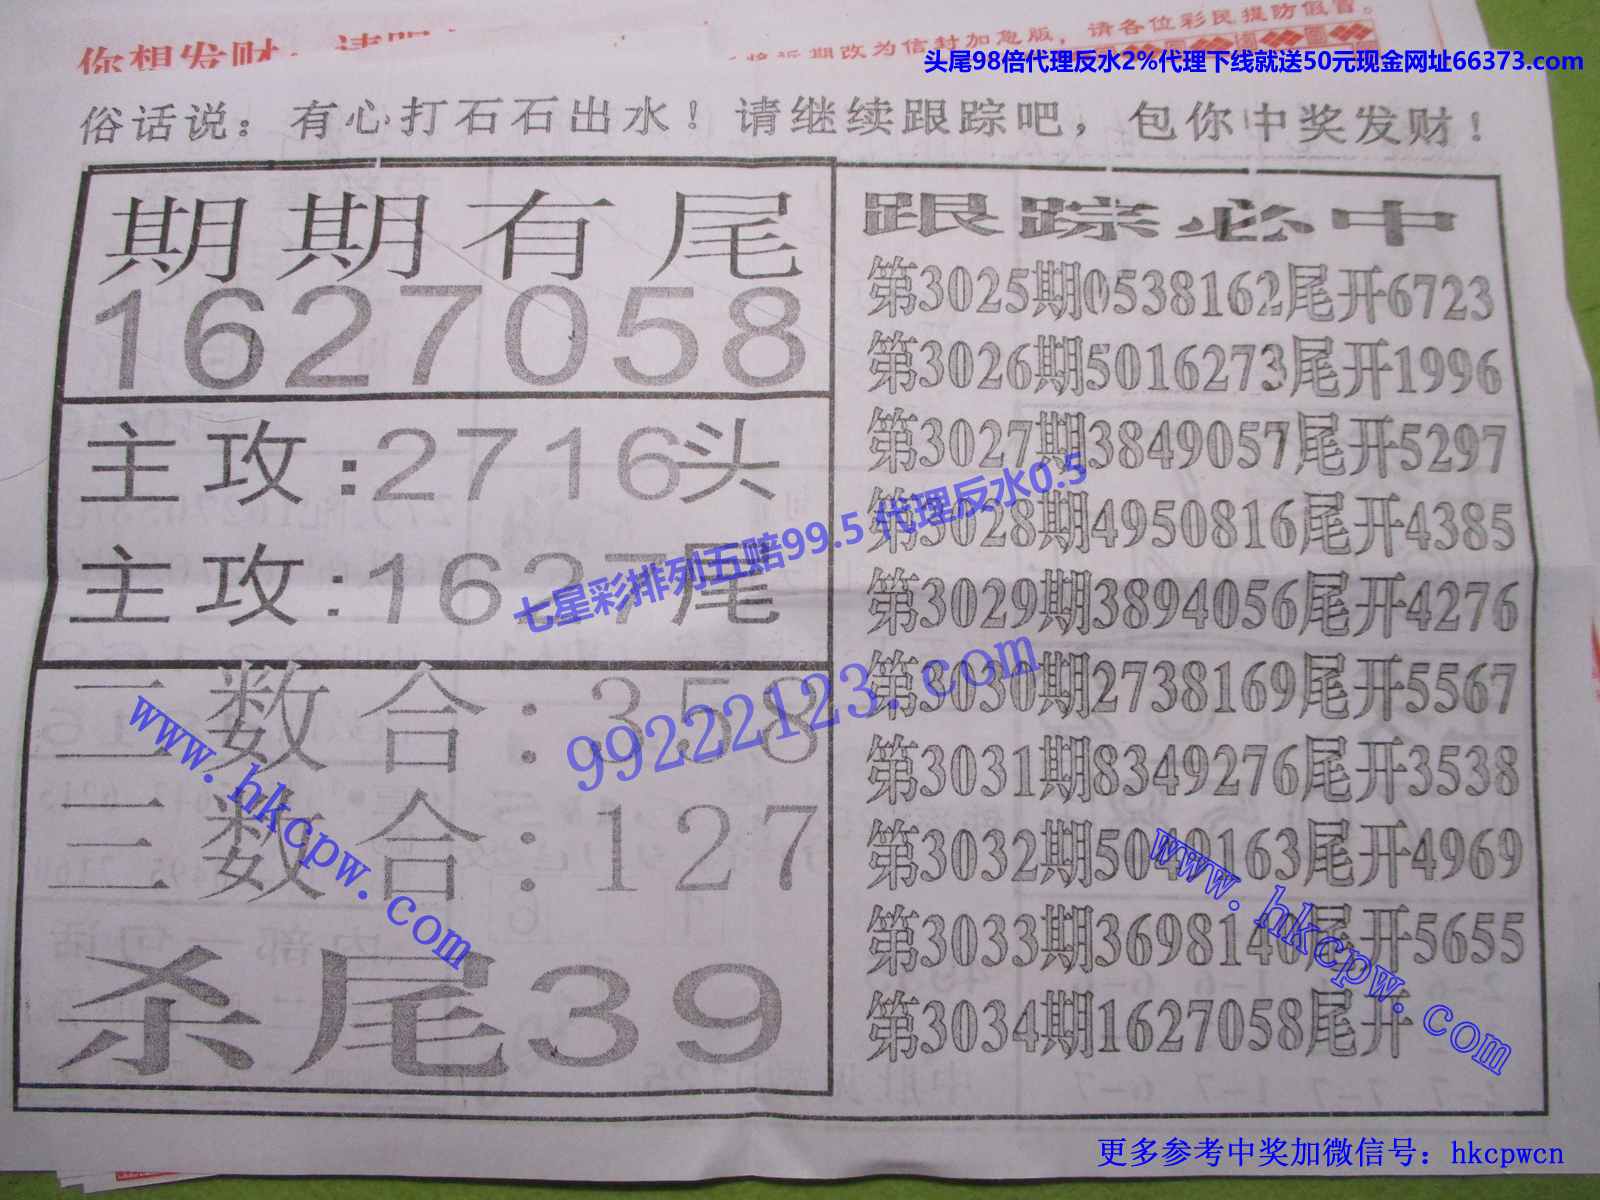 你想发财
将近期改为信封加急版，请各位彩民提防假冒。
头尾98倍代理反水2%代理下线就送50元现金网址66373.com
俗话说：有心打石石出水！请继续跟踪吧，包你中奖发财！
期期有尾
1627058
主攻:2716头
主攻:1627尾
二数合:358
三数合:127
杀尾39
跟踪必中
第3025期0538162尾开6723
第3026期5016273尾开1996
第3027期3849057尾开5297
第3028期4950816尾开4385
第3029期3894056尾开4276
第3030期2738169尾开5567
第3031期8349276尾开3538
第3032期5049163尾开4969
第3033期3698140尾开5655
第3034期1627058尾开
七星彩排列五赔99.5 代理反水0.5
99222123.com
www.hkcpw.com
www.hkcpw.com
更多参考中奖加微信号：hkcpwcn